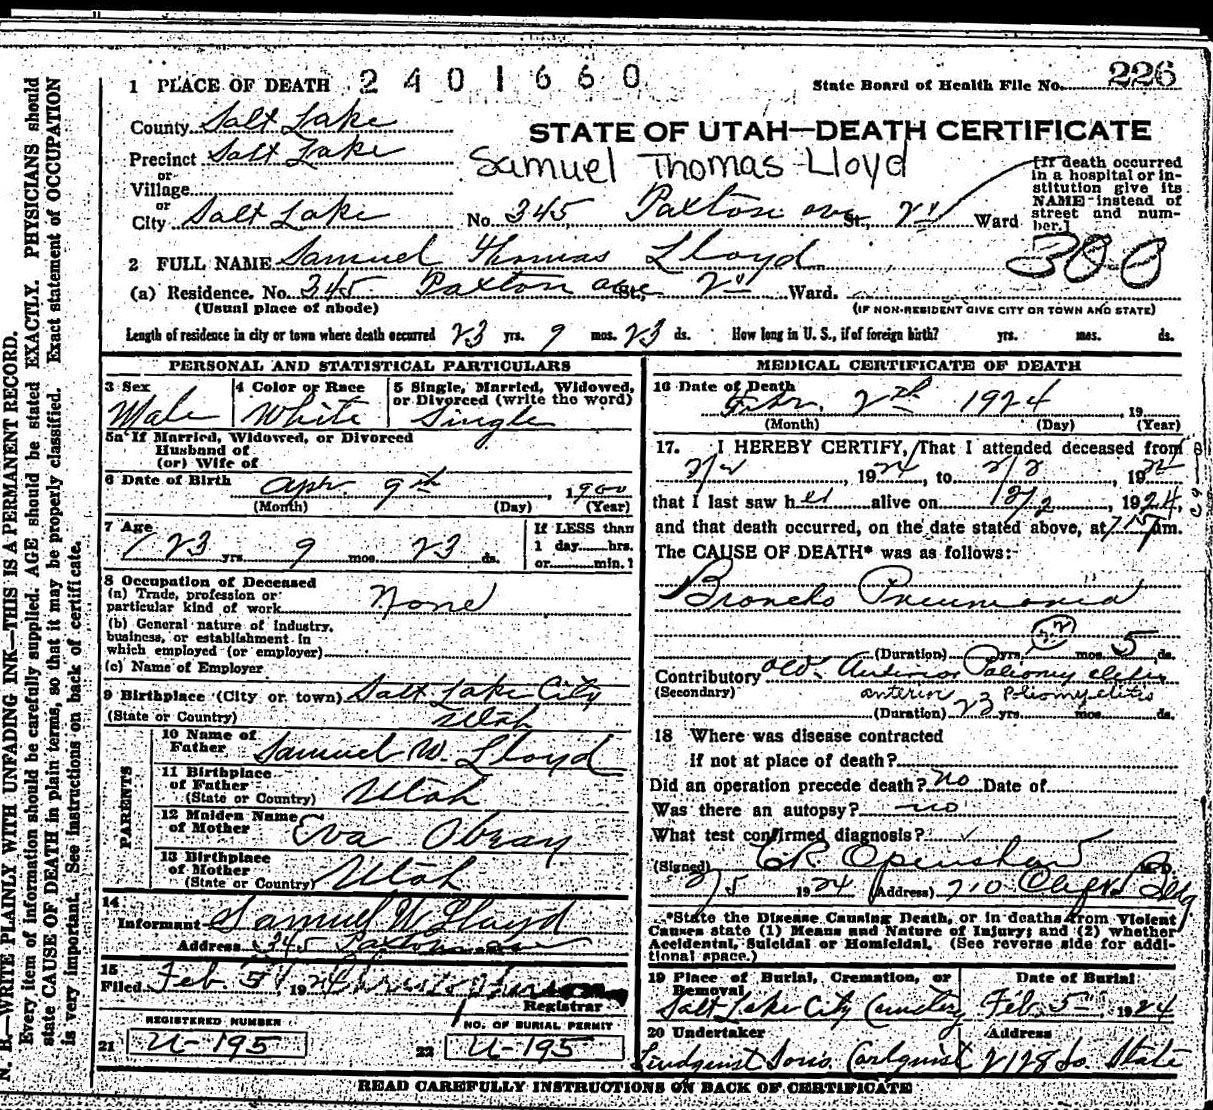 1 PLACE OF DEATH 2 4 0 1 6 6 0
State Board of Health File No. 226
County Salt Lake
STATE OF UTAH—DEATH CERTIFICATE
Precinct Salt Lake
Samuel Thomas Lloyd
or
Village
or
City Salt Lake No. 345 Paxton ave St., 2" Ward
[If death occurred
in a hospital or in-
stitution give its
NAME instead of
street and num-
ber.]
300
2 FULL NAME Samuel Thomas Lloyd
(a) Residence. No. 345 Paxton ave St., 2" Ward.
(Usual place of abode)
(IF NON-RESIDENT GIVE CITY OR TOWN AND STATE)
Length of residence in city or town where death occurred 23 yrs. 9 mos. 23 ds. How long in U. S., if of foreign birth? yrs. mos. ds.
PERSONAL AND STATISTICAL PARTICULARS
3 Sex
Male
4 Color or Race
White
5 Single, Married, Widowed,
or Divorced (write the word)
Single
5a If Married, Widowed, or Divorced
Husband of
(or) Wife of
6 Date of Birth Apr. 9th, 1900
(Month) (Day) (Year)
7 Age
23 yrs. 9 mos. 23 ds.
If LESS than
1 day......hrs.
or......min.?
8 Occupation of Deceased
(a) Trade, profession or
particular kind of work None
(b) General nature of Industry,
business, or establishment in
which employed (or employer)
(c) Name of Employer
9 Birthplace (City or town) Salt Lake City
(State or Country) Utah
PARENTS
10 Name of
Father Samuel W. Lloyd
11 Birthplace
of Father
(State or Country) Utah
12 Maiden Name
of Mother Eva Obray
13 Birthplace
of Mother
(State or Country) Utah
14
Informant Samuel W Lloyd
Address 345 Paxton ave
15
Filed Feb. 5 1924
Registrar
REGISTERED NUMBER
21 U-195
NO. OF BURIAL PERMIT
22 U-195
MEDICAL CERTIFICATE OF DEATH
16 Date of Death
Febr. 2nd 1924, 19
(Month) (Day) (Year)
17. I HEREBY CERTIFY, That I attended deceased from
2/2, 1924, to 2/2, 1924
that I last saw h alive on 2/2, 1924,
and that death occurred, on the date stated above, at 7 m.
The CAUSE OF DEATH* was as follows:
Broncho Pneumonia
(Duration) yrs. mos. 5 ds.
Contributory Old Anterior Poliomyelitis
(Secondary) anterior Poliomyelitis
(Duration) 23 yrs. mos. ds.
18 Where was disease contracted
If not at place of death?
Did an operation precede death? no Date of
Was there an autopsy? no
What test confirmed diagnosis?
(Signed) C R Openshaw
2/5 1924 (Address) 710 Clift Bldg
*State the Disease Causing Death, or in deaths from Violent
Causes state (1) Means and Nature of Injury; and (2) whether
Accidental, Suicidal or Homicidal. (See reverse side for addi-
tional space.)
19 Place of Burial, Cremation, or
Removal
Salt Lake City Cemetery
Date of Burial
Feb. 5", 1924
20 Undertaker Address
Lindquist Sons Carlquist 2128 So. State
READ CAREFULLY INSTRUCTIONS ON BACK OF CERTIFICATE
N. B.—WRITE PLAINLY WITH UNFADING INK—THIS IS A PERMANENT RECORD.
Every item of information should be carefully supplied. AGE should be stated EXACTLY. PHYSICIANS should
state CAUSE OF DEATH in plain terms, so that it may be properly classified. Exact statement of OCCUPATION
is very important. See instructions on back of certificate.